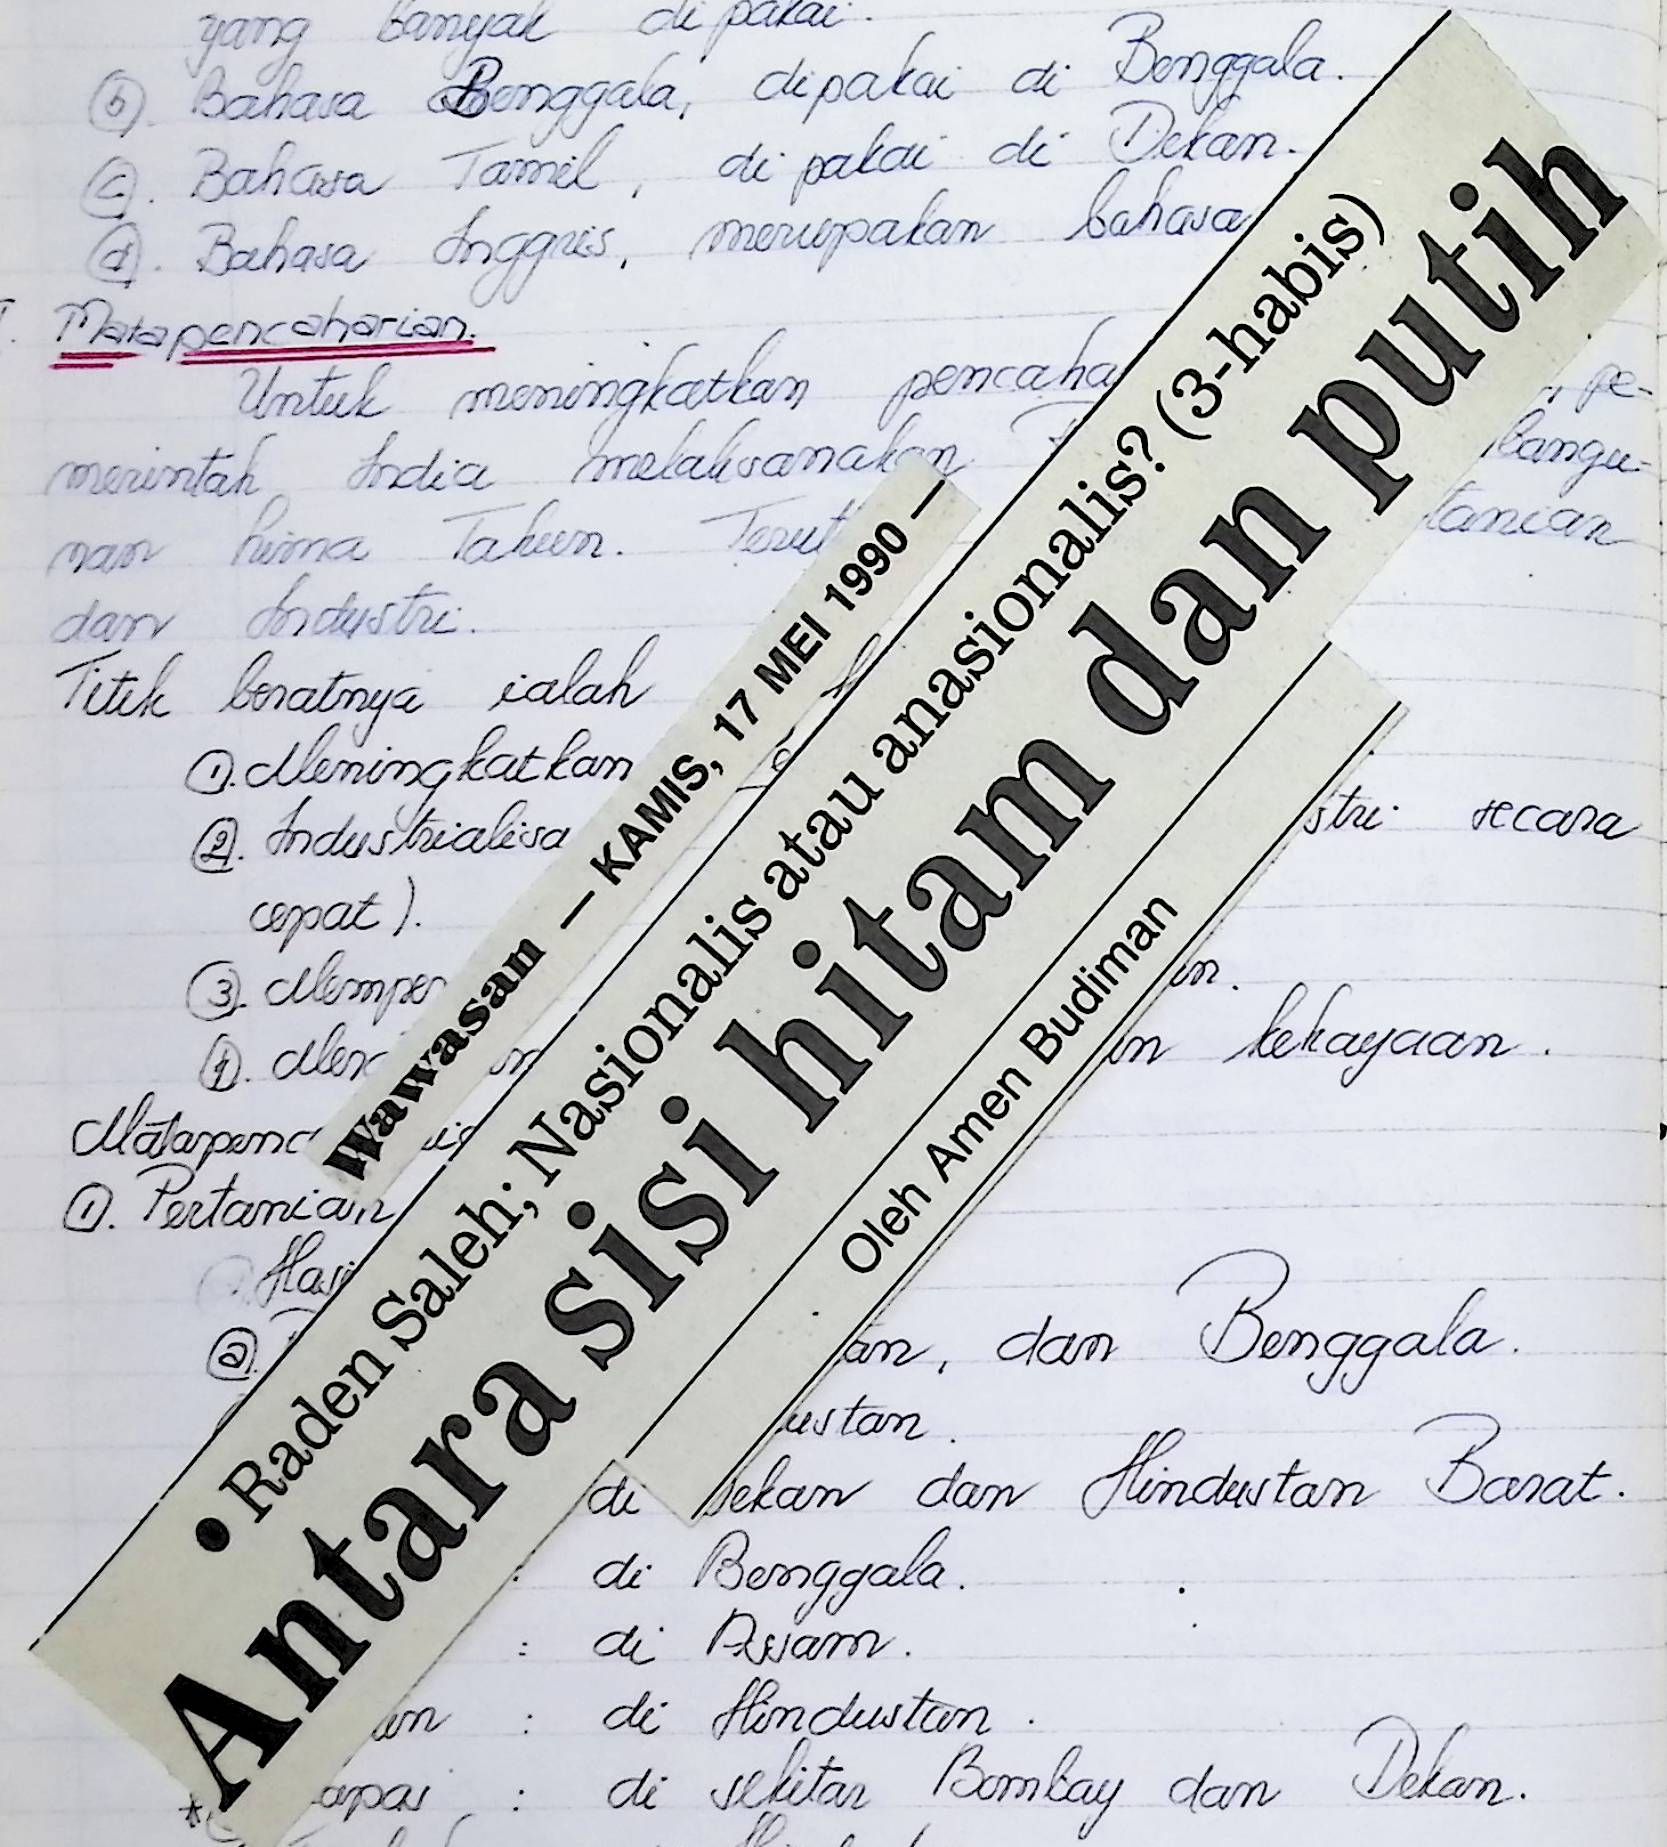 yang banyak dipakai.
b. Bahasa Benggala, dipakai di Benggala.
c. Bahasa Tamil, di pakai di Dekan.
d. Bahasa Inggris, merupakan bahasa
Matapencaharian.
Untuk meningkatkan pe-
merintah India melaksanakan
nan lima Tahun.
dan Industri.
Titik beratnya ialah
1. Meningkatkan
2. secara
cepat).
3.
4. kekayaan.
1. Pertanian
a. dan Benggala.
di Dekan dan Hindustan Barat.
: di Benggala.
: di Assam.
: di Hindustan.
: di sekitar Bombay dan Dekan.
Wawasan — KAMIS, 17 MEI 1990 —
• Raden Saleh; Nasionalis atau anasionalis? (3-habis)
Antara sisi hitam dan putih
Oleh Amen Budiman